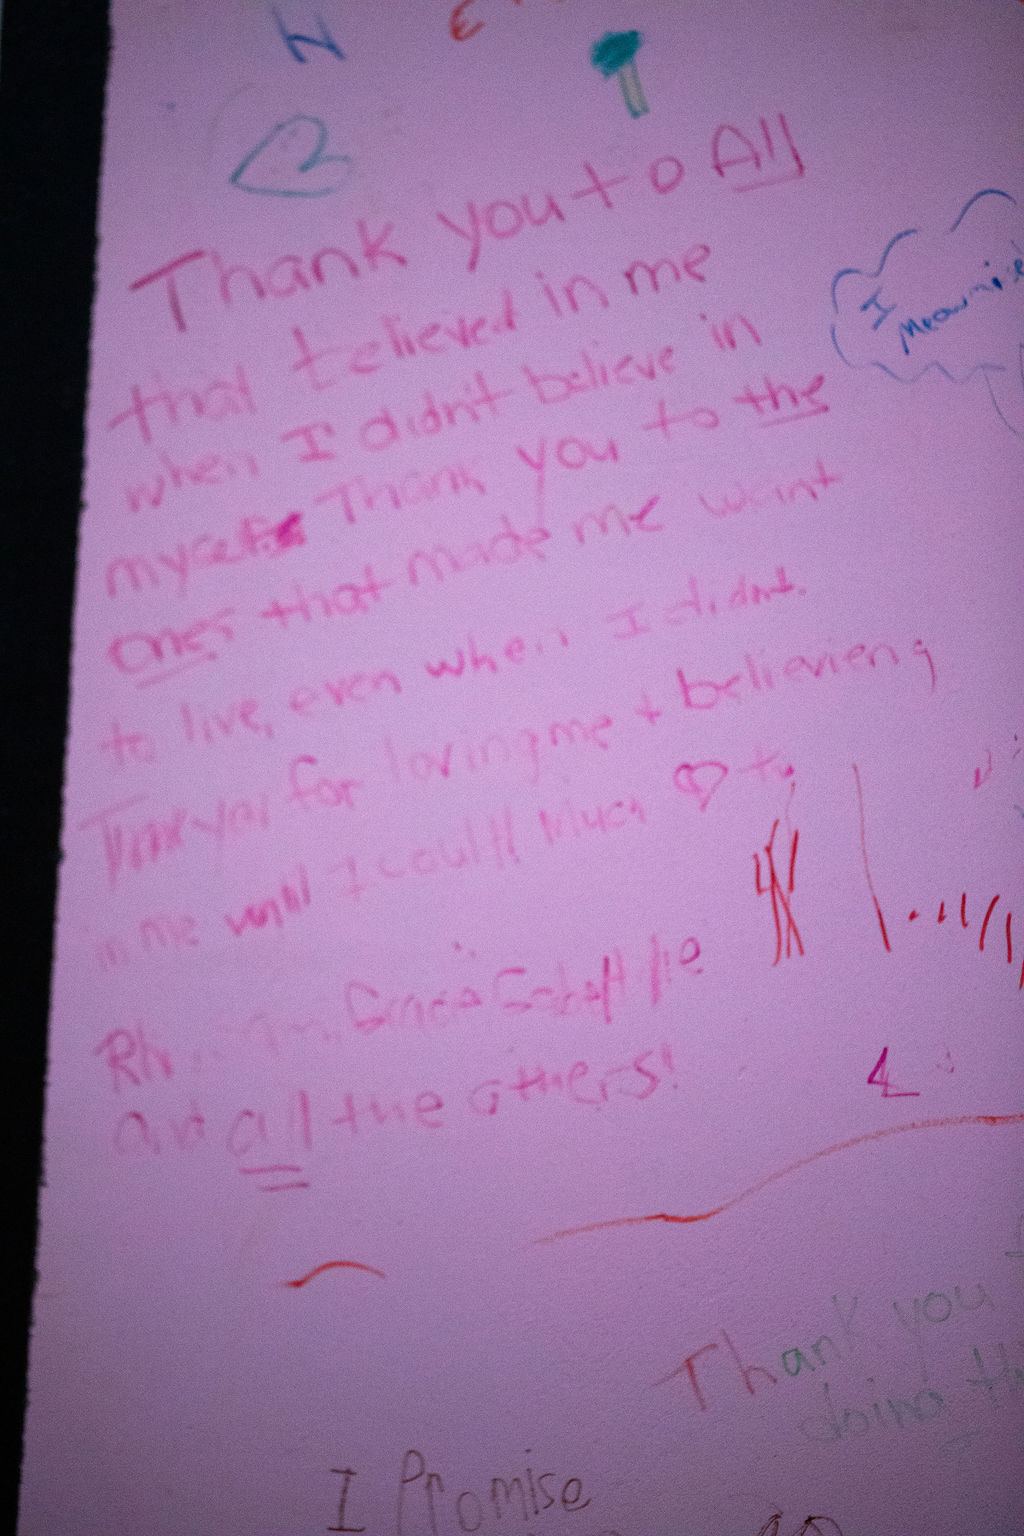 Thank you to All
that believed in me
when I didn't believe in
myself Thank you to the
ones that made me want
to live, even when I didnt.
Thank you for loving me + believieng
in me until I could
and all the others!
I
Thank you
doing
I Promise